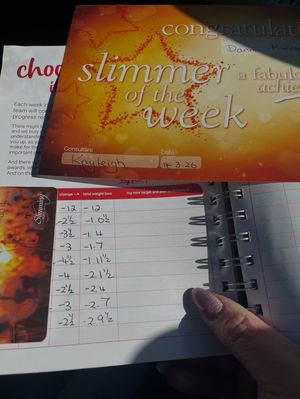 congratulat
slimmer
of the
week
a fabulo
achie
Consultant
Kayleigh
Date
14.3.26
choo
Each week
team will co
progress no
There migh
and we truly
understand
you up, all yo
make for the
important
And there
awards, w
And on th
Slimming
change
total weight loss
my mini target and
-12 -12
-2½ -1.0½
-3½ -1.4
-3 -1.7
-4½ -1.11½
-4 -2.1½
-2½ -2.4
-3 -2.7
-2½ -2.9½